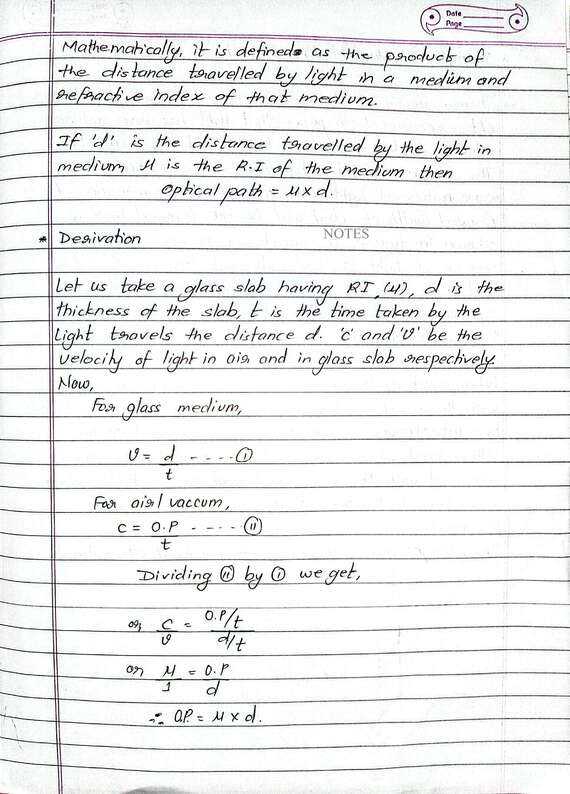 Date
Page
Mathematically, it is defined as the product of
the distance travelled by light in a medium and
refractive index of that medium.
If 'd' is the distance travelled by the light in
medium μ is the R.I of the medium then
optical path = μ x d.
* Derivation
NOTES
Let us take a glass slab having RI, (μ), d is the
thickness of the slab, t is the time taken by the
Light travels the distance d. 'c' and 'v' be the
velocity of light in air and in glass slab respectively.
Now,
For glass medium,
v = d/t ---- (i)
For air/vaccum,
c = O.P/t ----- (ii)
Dividing (ii) by (i) we get,
or, c/v = O.P/t / d/t
or μ/1 = O.P/d
∴ O.P. = μ x d.